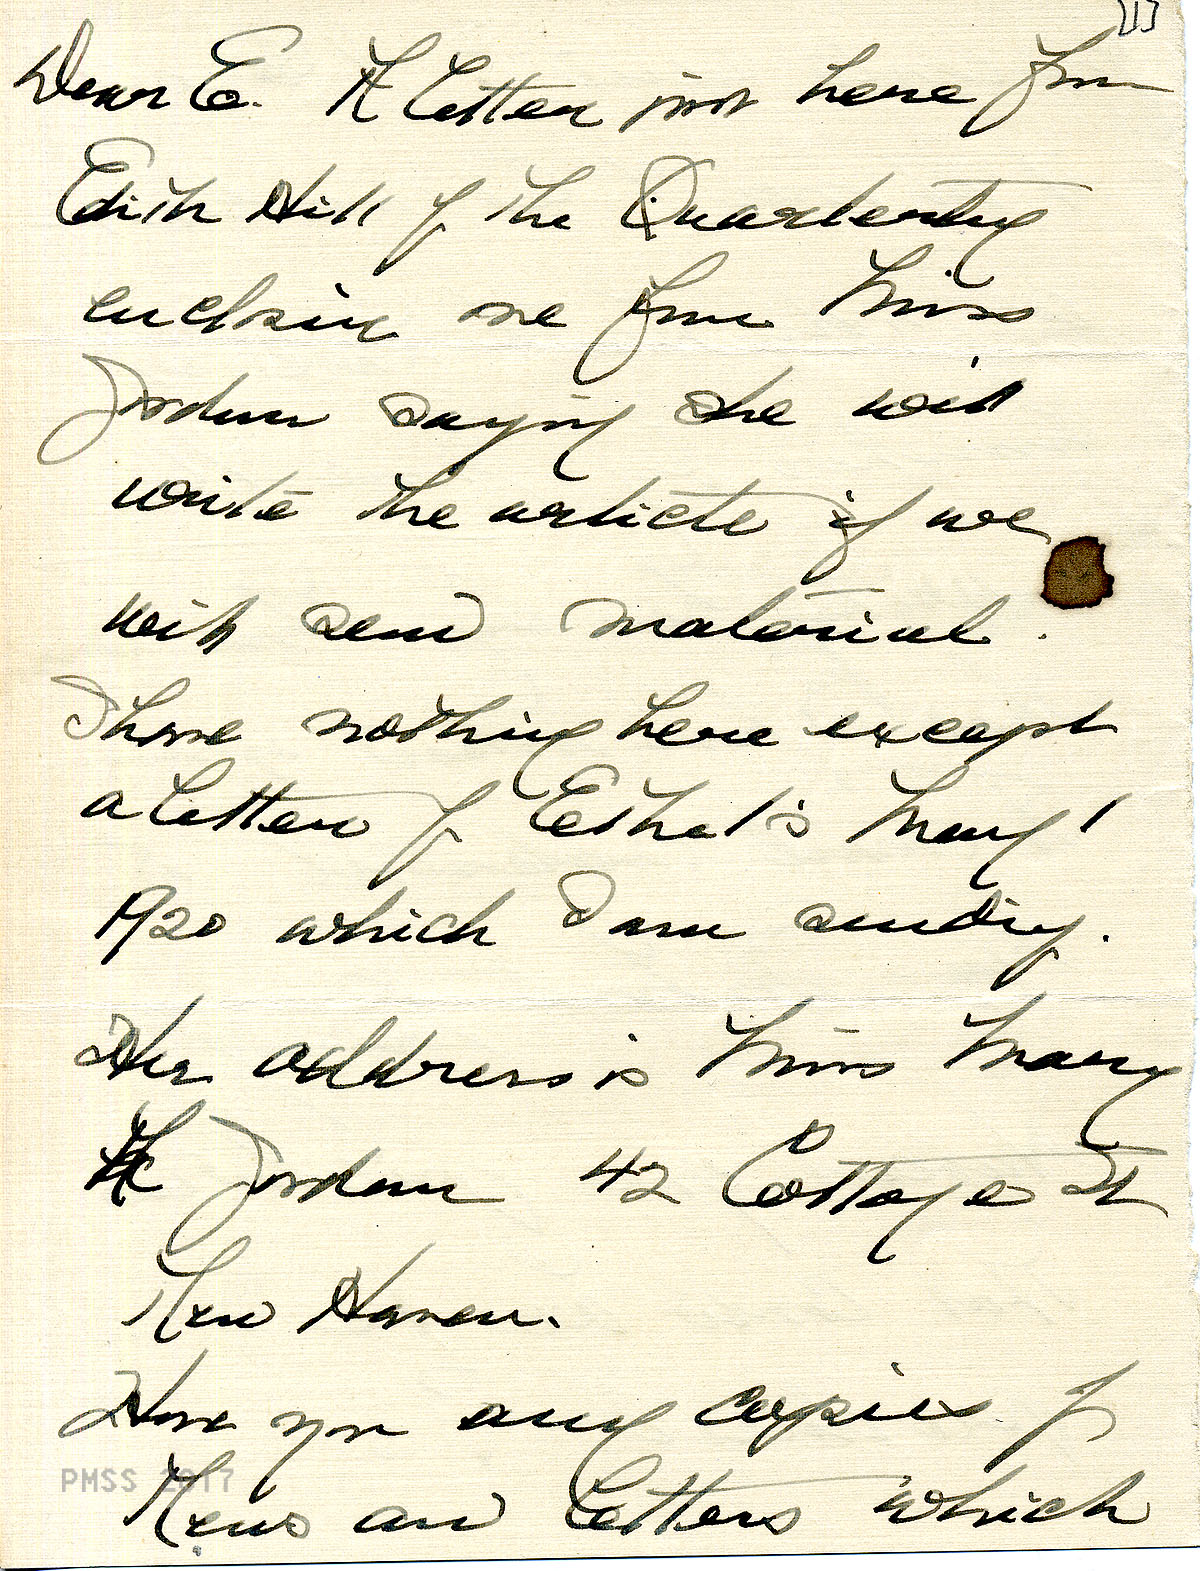 [1]
Dear E. A letter just here from
Edith Hill of the Quarterly
enclosing one from Miss
Jordan saying she will
write the article if we
will send material.
I have nothing here except
a letter of Ethel's May 1
1920 which I am sending.
Her address is Miss Mary
A Jordan 42 Cottage St
New Haven.
Have you any copies of
PMSS 2017
News and Letters which